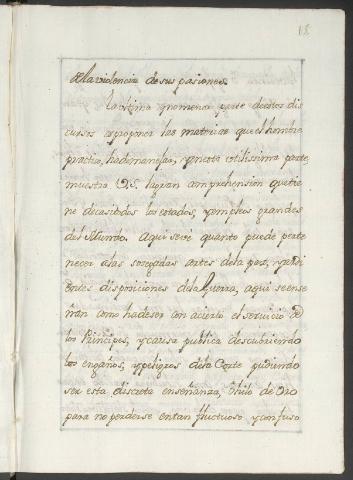 18
de la violencia de sus pasiones.
La vltima y no menor parte destos dis
cursos a proponer las materias que el hombre
practico, ha de manejar, y en esta vtilissima parte
muestra V.S. la gran comprehension que tie
ne de casi todos los estados, y empleos grandes
del Mundo. Aqui se ve quanto puede perte
necer a las sosegadas artes de la paz, y
entes disposiciones de la Guerra, aqui se ense
ñan como ha de ser con acierto el servicio de
los Principes, y causa publica descubriendo
los engaños, y peligros de la Corte pudiendo
ser esta discreta enseñanza, Ohilo de Oro
para no perderse en tan fluctuoso y confuso